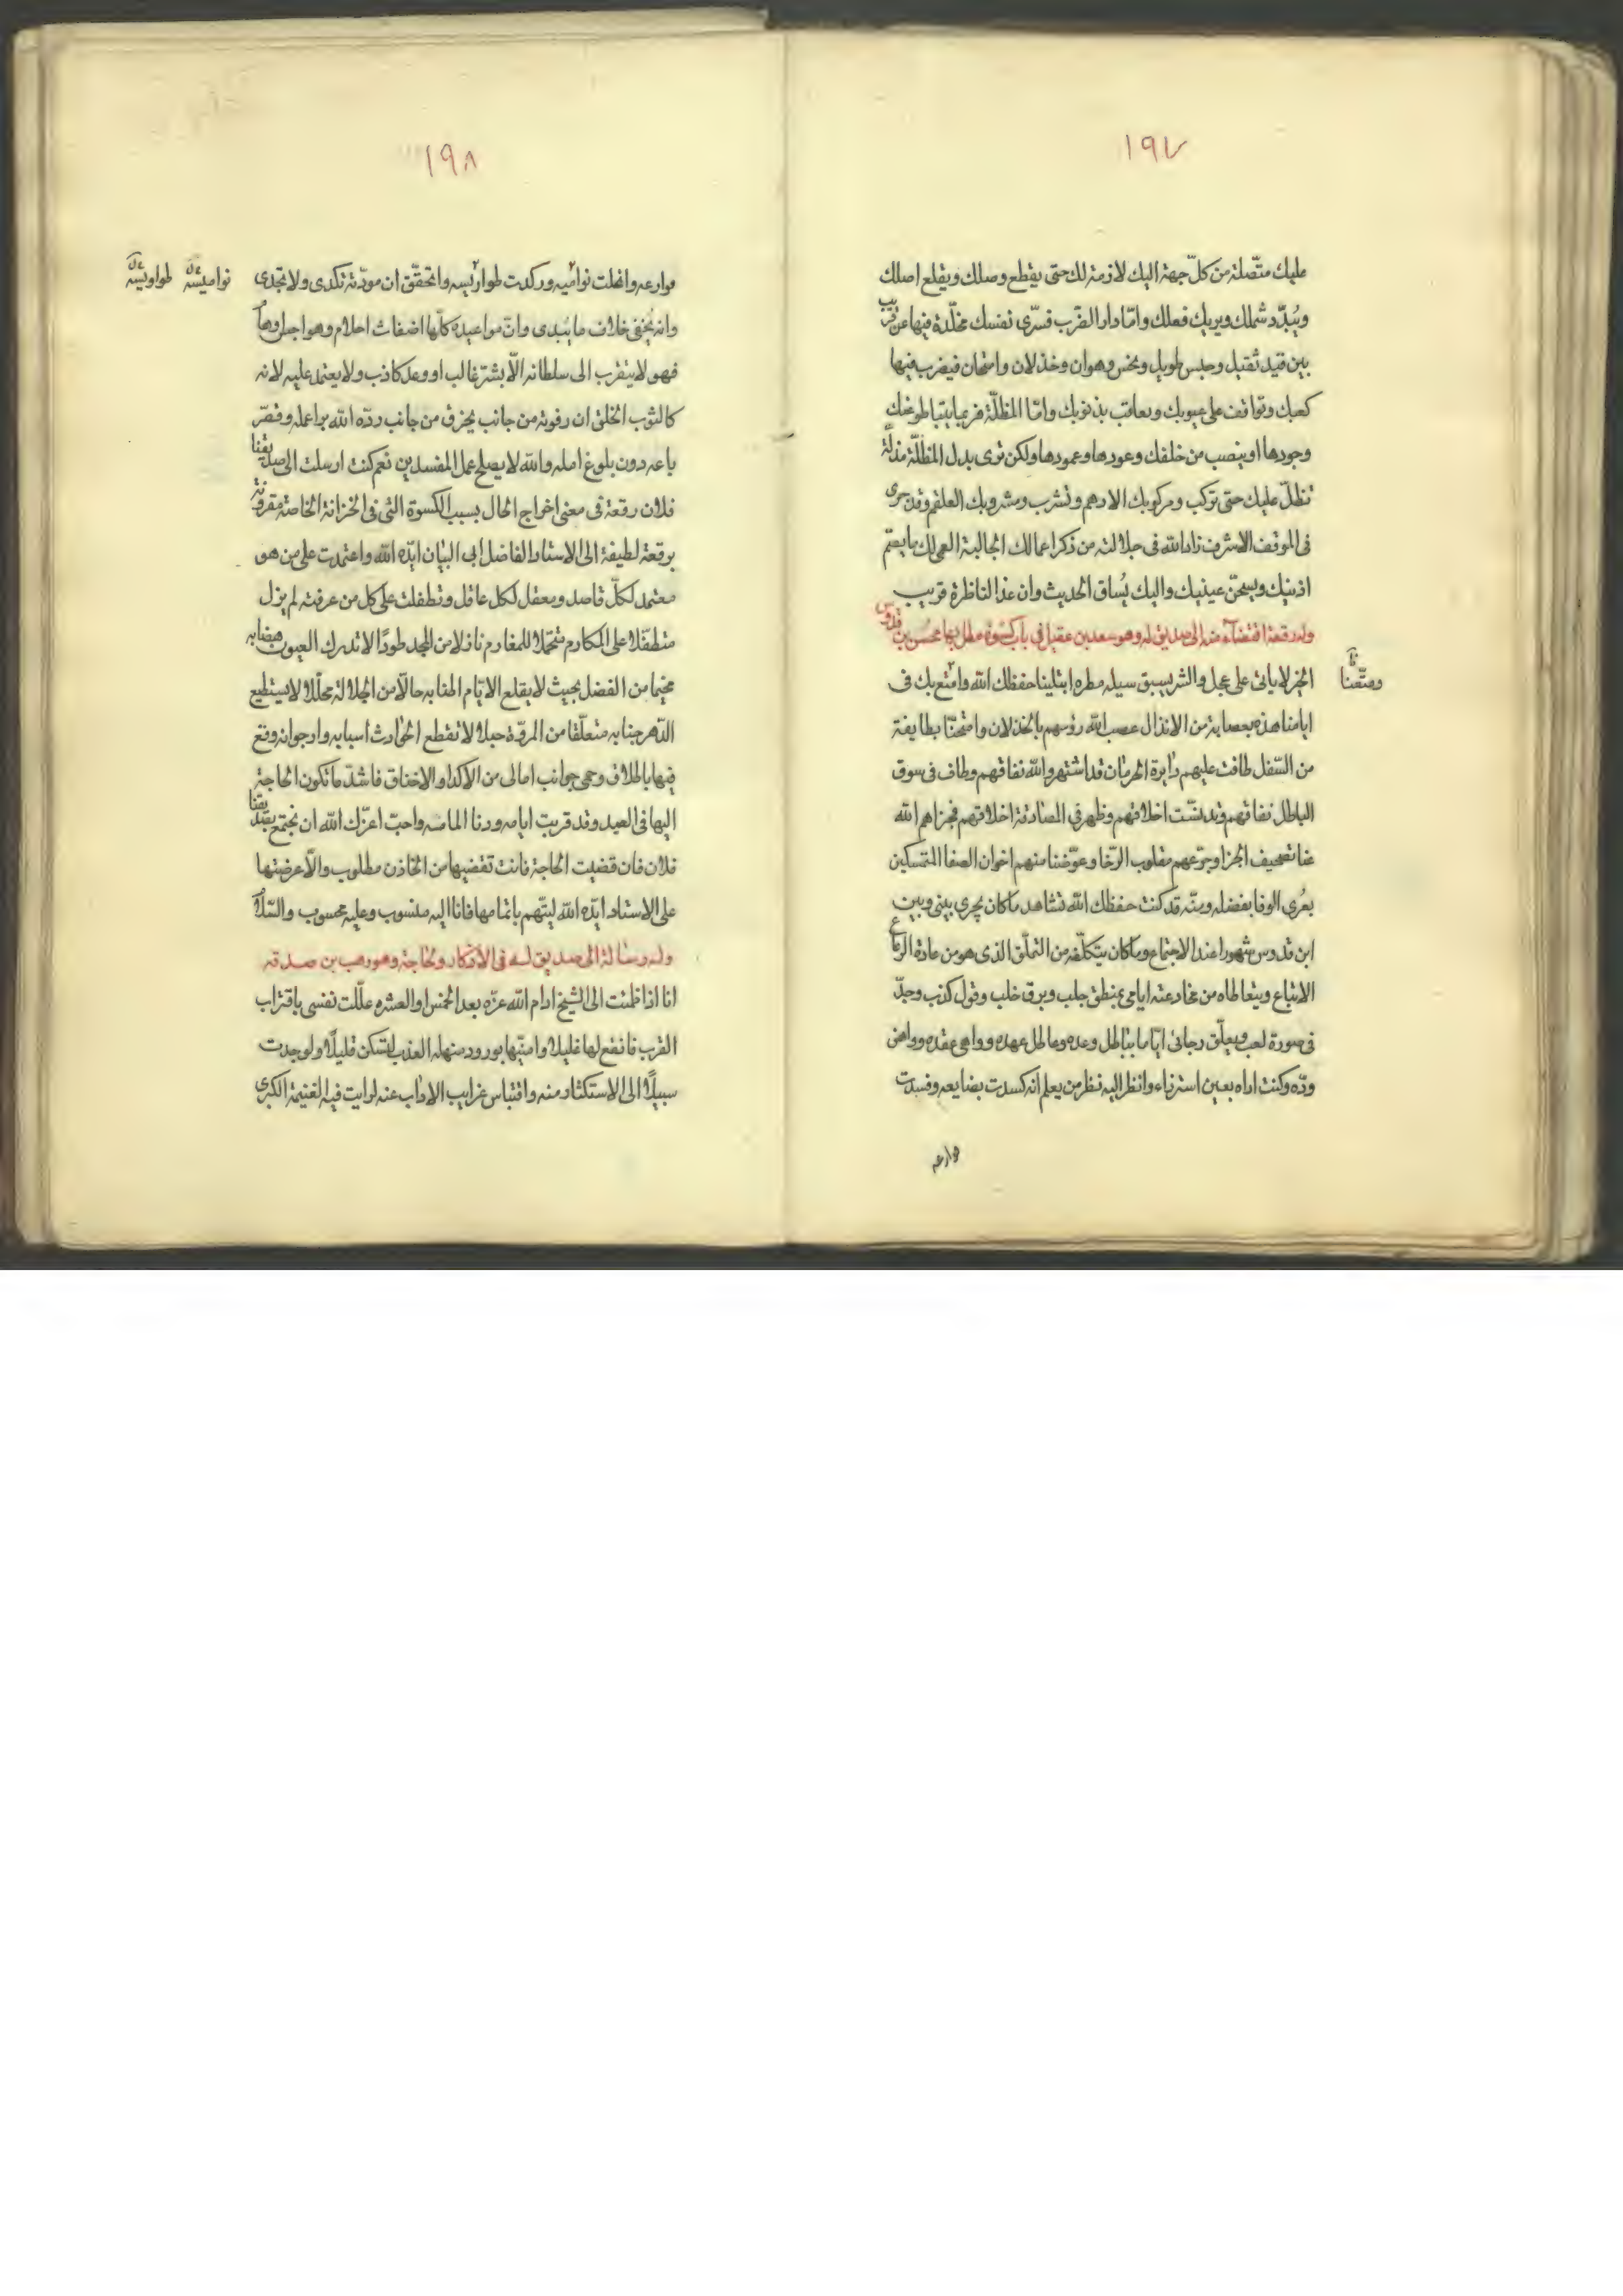 ١٩٧
عليك متّصلة من كلّ جهة اليك لازمة لك حتى يقطع وصلك ويقلع اصلك
ويُبدّد شملك ويريك فعلك وامّا دار الضرب فسترى نفسك مخلّدة فيها عن قريب
بين قيد ثقيل وحبس طويل ونخس وهوان وخذلان وامتهان فيضرب فيها
كعبك وتواقف على عيوبك وتعاقب بذنوبك وامّا المظلّة فربما
وجودها او ينصب من خلفك وعودها وعمودها ولكن ترى بدل المظلّة مذلّة
تظلّ عليك حتى تركب ومركوبك الادهم وتشرب ومشروبك العلقم وقد جرى
فى الموقف الاشرف زاد الله فى جلالته من ذكر اعمالك الجالبة العمى لك ما يصمّ
اذنيك ويسخن عينيك واليك يُساق الحديث وان غذا لناظرة قريب
وله رقعة اقتضاء منه الى صديق له وهو سعد بن عقيل فى باب كسوة مطل بها محسن بن قدوس
الخير لا ياتى على عجل والشر يسبق سيله مطره ابتلينا حفظك الله وامتع بك فى
ومتّعنا
ايامنا هذه بعصابة من الانذال عصب الله رؤسهم بالخذلان وامتحنّا بطايفة
من السّفل طافت عليهم دايرة الحرمان قد اشتهر والله نفاقهم وطاف فى سوق
الباطل نفاقهم وتدنّست اخلاقهم وظهر فى المصادقة اخلاقهم فجزاهم الله
عنا تصحيف الجزا وجرّعهم مقلوب الرّخا وعوّضنا منهم اخوان الصفا المتمسكين
بعُرى الوفا بفضله ومنّه قد كنت حفظك الله تشاهد ما كان يجرى بينى وبين
ابن قدوس شهورا عند الاجتماع وما كان يتكلّفه من التملّق الذى هو من عادة الرعاع
الاتباع ويتعاطاه من مخادعته ايامى بمنطق جلب وبرق خلب وقول كذب وجدّ
فى صورة لعب ويعلّق رجائى ايّاما بباطل وعده وعاطل عهده وواهى عقده وواهن
ودّه وكنت اراه بعين استرزاء وانظر اليه نظر من يعلم انه كسدت بضايعه وفسدت
موارعه
١٩٨
موارعه وانحلت نواميه وركدت طواريسه واتحقّق ان مودّته تكدى ولا تجدى
نواميسه طواويسه
وانه يُخفى خلاف ما يُبدى وانّ مواعيده كلّها اضغاث احلام وهو اجل وهام
فهو لا يتقرب الى سلطانه الّا بشرّ غالب او وعد كاذب ولا يعتمد عليه لانه
كالثوب الخلق ان رفوته من جانب يخرق من جانب ردّه الله براعمله وقصّر
باعه دون بلوغ امله والله لا يصلح عمل المفسدين نعم كنت ارسلت الى صديقنا
فلان رقعة فى معنى اخراج الحال بسبب الكسوة التى فى الخزانة الخاصة مقرونة
برقعة لطيفة الى الاستاد الفاضل ابى البيان ايّده الله واعتمدت على من هو
معتمد لكلّ قاصد ومعقل لكل عاقل وتطفلت على كل من عرفته لم يزل
متطفّلا على المكارم متحمّلا للمغارم نازلا من المجد طودًا لا تدرك العيون هضابه
مخيما من الفضل بحيث لا يقلع الايام حالّا من الجلالة محلّلا لا يستطيع
الدّهر جنابه متعلّقا من المروّة حبلا لا تقطع الحوادث اسبابه وارجو انه وقع
فيها باطلاق وحمى جوانب امالى من الاكداء والاخفاق فاشدّ ما تكون الحاجة
اليها فى العيد وقد قربت ايامه ودنا المامه واحبّ اعزّك الله ان نجتمع بصديقنا
فلان فان قضيت الحاجة فانت تقضيها من الخازن مطلوب والّا عرضتها
على الاستاد ايّده الله ليتّهم باتمامها فانا اليه منسوب وعليه محسوب والسّلام
وله رسالة الى صديق له فى الاذكار وحاجة وهو وهب بن صدقه
انا اذا ظمئت الى الشيخ ادام الله عزّه بعد الخمس او العشره علّلت نفسى باقتراب
القرب فانقع لها غليلا وامنّيها بورود منهله العذب لتسكن قليلًا ولو وجدت
سبيلًا الى الاستكثار منه واقتباس غرايب الاداب عنه لرايت فيه الغنيمة الكبرى